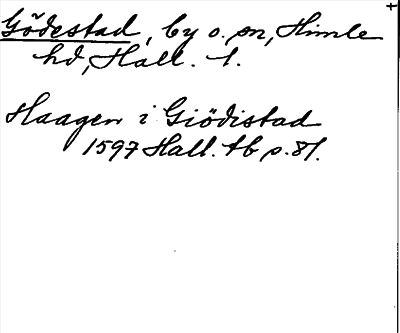 Gödestad, by o. sn, Himle
hd, Hall. l.
Haagen i Giödistad
1597 Hall. tb p. 81.